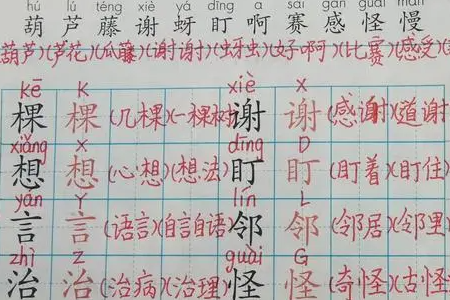 hú lú téng xiè yá dīng a sài gǎn guài màn
葫 芦 藤 谢 蚜 盯 啊 赛 感 怪 慢
葫芦)(芦花)(瓜藤)(谢谢)(蚜虫)(好啊)(比赛)(感受)(
kē K xiè X
棵 棵 (几棵)(一棵树) 谢 谢 (感谢)(道谢
xiǎng x dīng D
想 想 (心想)(想法) 盯 盯 (盯着)(盯住)
yán Y lín L
言 言 (语言)(自言自语) 邻 邻 (邻居)(邻里
zhì z guài G
治 治 (治病)(治理) 怪 怪 (奇怪)(古怪